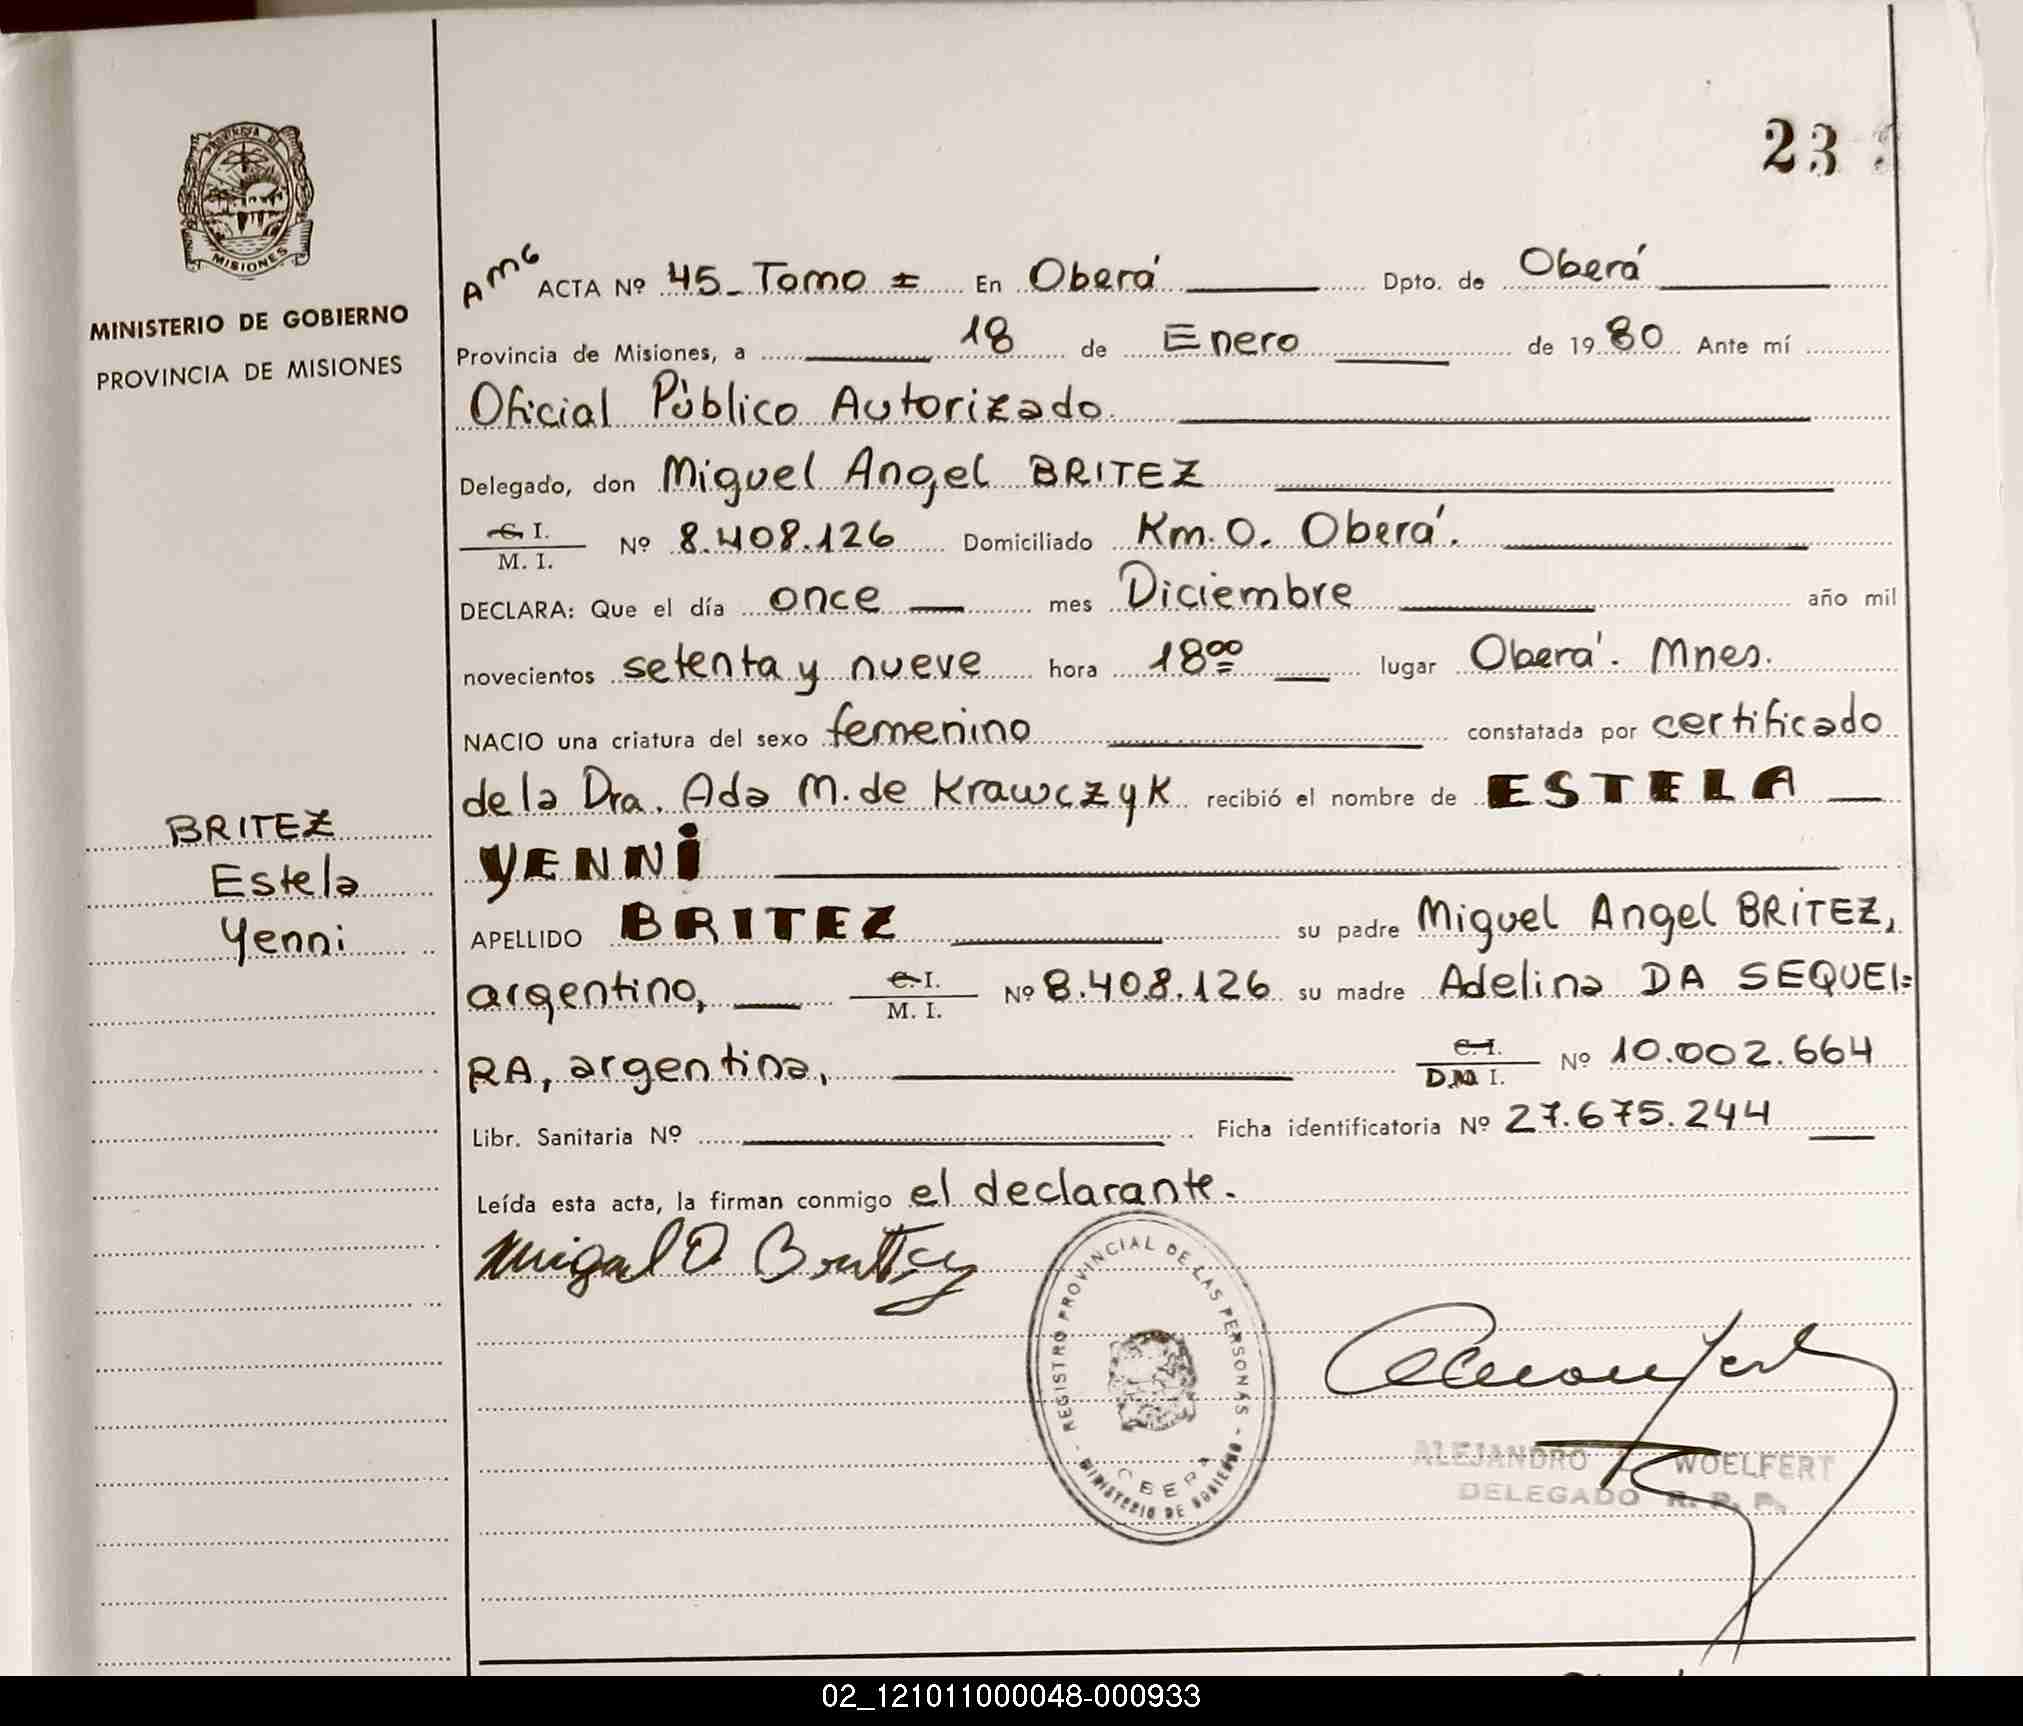 23
PROVINCIA DE
MISIONES
MINISTERIO DE GOBIERNO
PROVINCIA DE MISIONES
BRITEZ
Estela
Yenni
AMG ACTA Nº 45_ Tomo I En Oberá Dpto. de Oberá
Provincia de Misiones, a 18 de Enero de 1980 Ante mí
Oficial Público Autorizado.
Delegado, don Miguel Angel BRITEZ
C. I. / M. I. Nº 8.408.126 Domiciliado Km. 0. Oberá.
DECLARA: Que el día once mes Diciembre año mil
novecientos setenta y nueve hora 18⁰⁰ lugar Oberá. Mnes.
NACIO una criatura del sexo femenino constatada por certificado
de la Dra. Ada M. de Krawczyk recibió el nombre de ESTELA
YENNI
APELLIDO BRITEZ su padre Miguel Angel BRITEZ,
argentino, C. I. / M. I. Nº 8.408.126 su madre Adelina DA SEQUEI=
RA, argentina, C. I. / D.N I. Nº 10.002.664
Libr. Sanitaria Nº Ficha identificatoria Nº 27.675.244
Leída esta acta, la firman conmigo el declarante.
REGISTRO PROVINCIAL DE LAS PERSONAS
- MINISTERIO DE GOBIERNO -
ALEJANDRO WOELFERT
DELEGADO R. P. P.
02_121011000048-000933